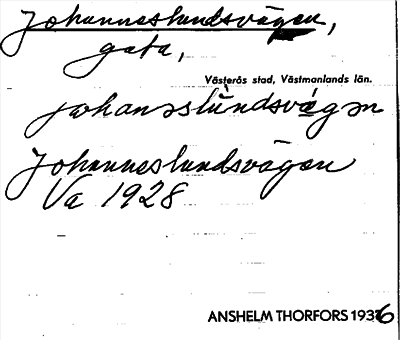 Johanneslundsvägen,
gata,
Västerås stad, Västmanlands län.
johanəslùndsvägən
Johanneslundsvägen
Va 1928
ANSHELM THORFORS 1936